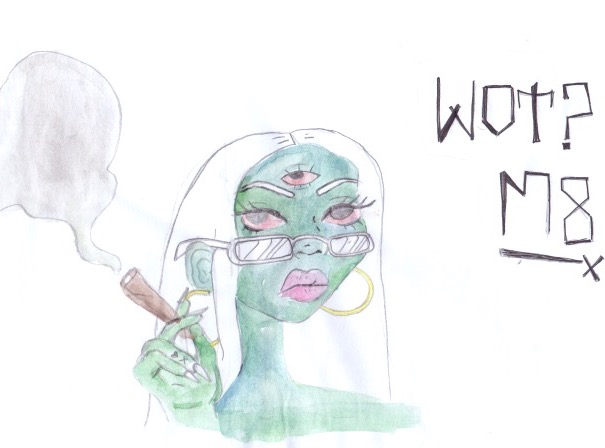 WOT?
M8
x